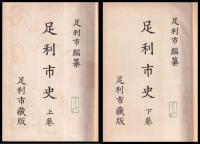 足利市編纂
足利市史 上巻
足利市蔵版
足利市編纂
足利市史 下巻
足利市蔵版